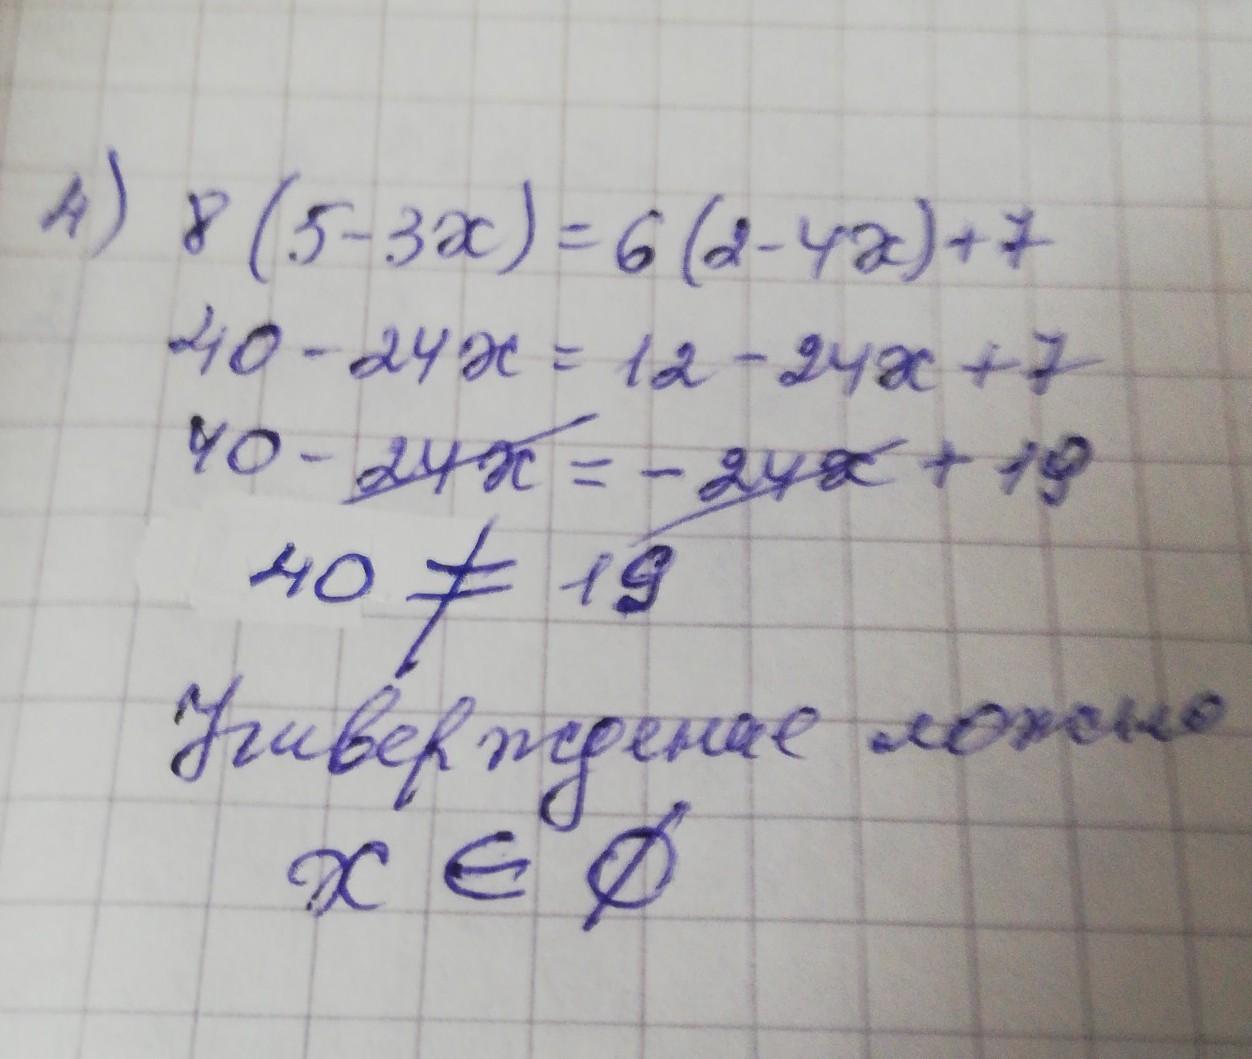 4) 8(5-3x)=6(2-4x)+7
40-24x=12-24x+7
40-24x=-24x+19
40≠19
Утверждение ложно
x∈∅